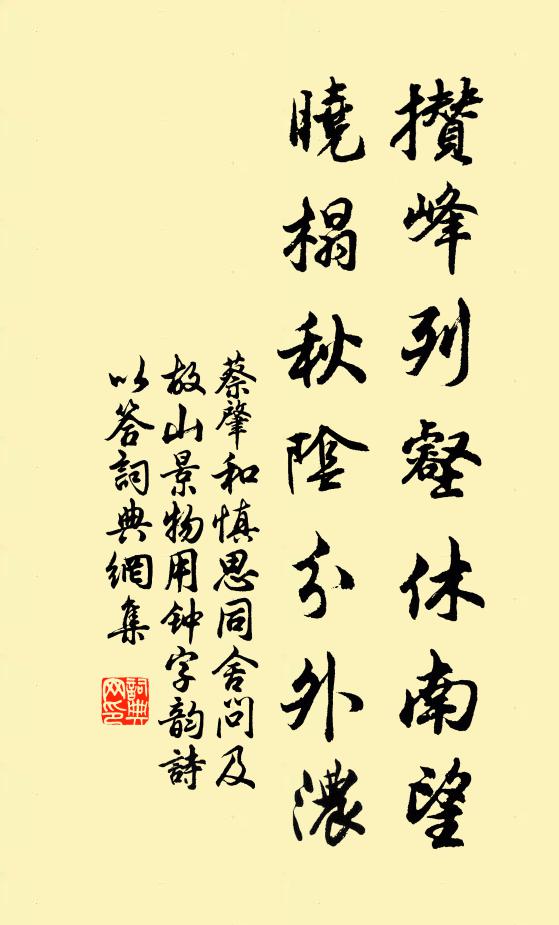 攢峰列壑休南望
曉榻秋陰分外濃
蔡肇和慎思同舍問及
故山景物用钟字韵詩
以答詞典網集
詞典
网印